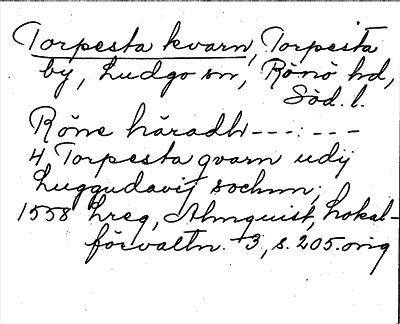 Torpesta kvarn, Torpesta
by, Ludgo sn, Rönö hd,
Söd. l.
Röne häradh---:---
4 Torpesta qvarn udij
Luggudavij sochnn;
1558 Lreg, Almquist, Lokal-
förvaltn. 3, s. 205. orig